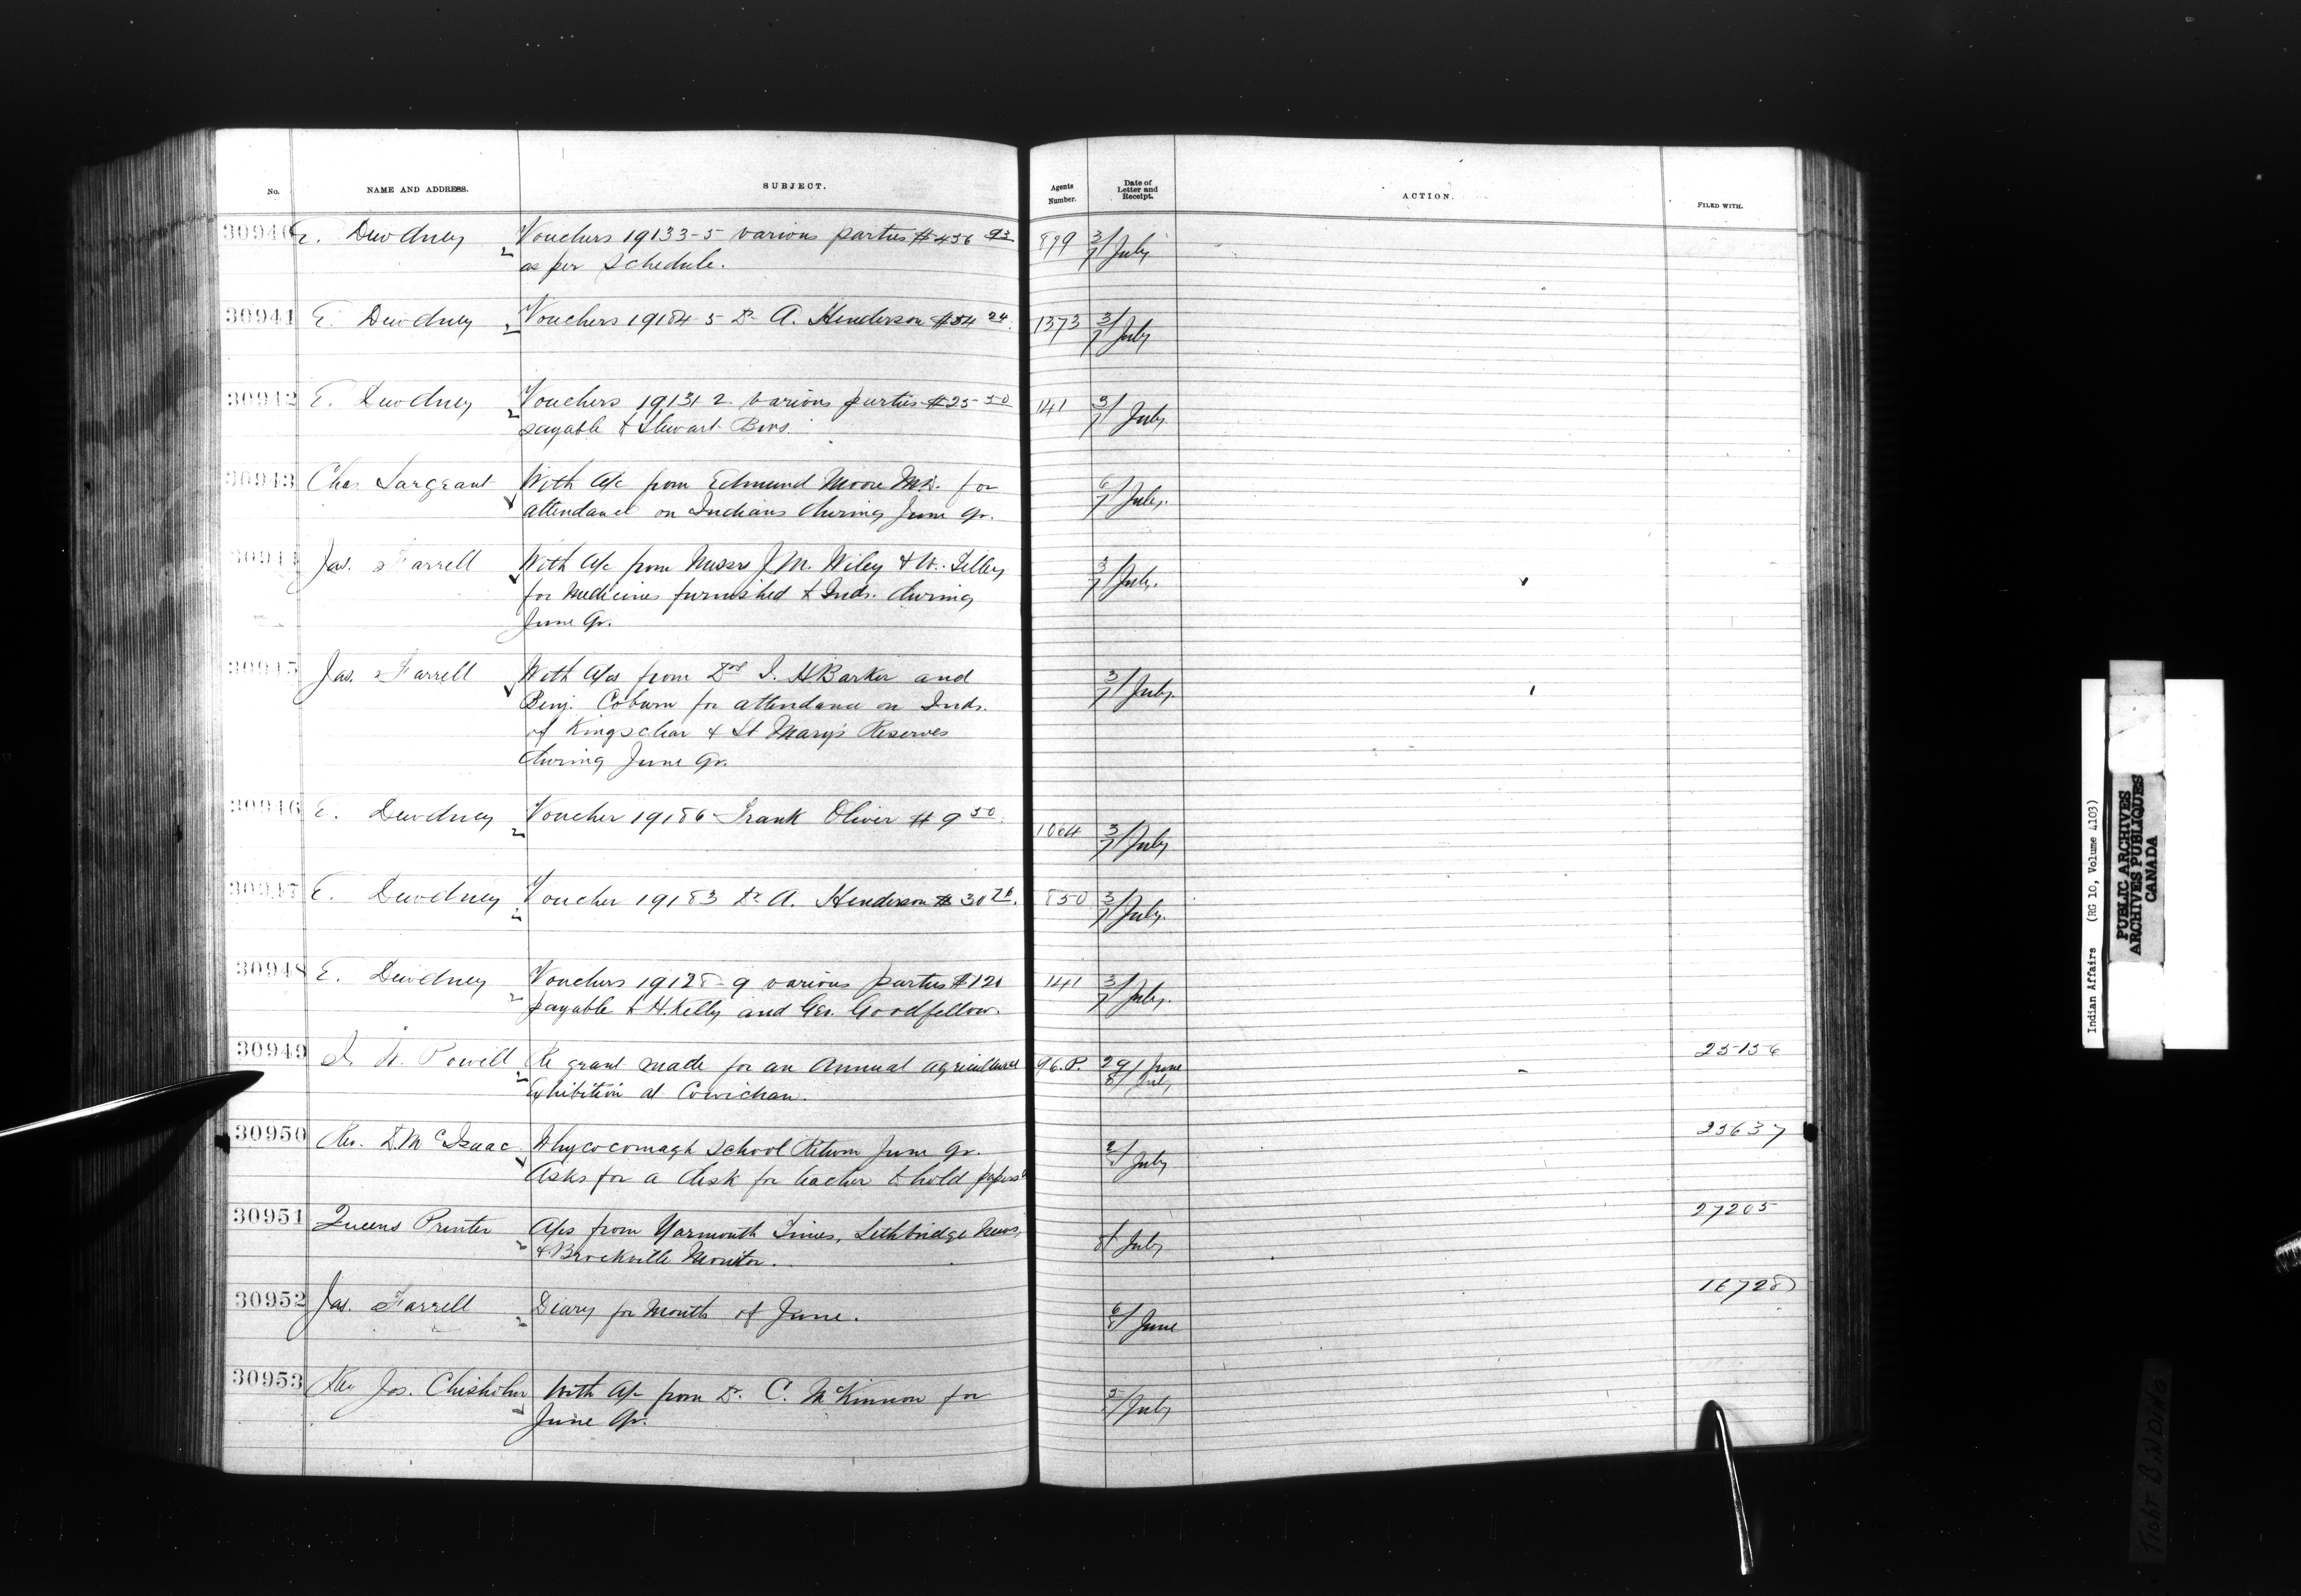 No. NAME AND ADDRESS. SUBJECT. Agents Number. Date of Letter and Receipt. ACTION. FILED WITH.
30940 E. Dewdney Vouchers 19133-5 various parties $456 93 899 3/7 July
as per Schedule.
30941 E. Dewdney Vouchers 19184-5 Dr A. Henderson $54 24. 1373 3/7 July
30942 E. Dewdney Vouchers 19131-2 various parties $25 50 141 3/7 July
payable to Stewart Bros.
30943 Chas Sargeant With a/c from Edmund Moore M.D. for 6/7 July.
attendance on Indians during June qr.
30944 Jas. Farrell With a/c from Messrs J. M. Wiley & W. Tilley 3/7 July.
for medicines furnished to Inds. during
June qr.
30945 Jas. Farrell With a/cs from Drs I. H Barker and 3/7 July.
Benj. Coburn for attendance on Inds.
of Kingsclear & St Mary's Reserves
during June qr.
30946 E. Dewdney Voucher 19186 Frank Oliver $9 50. 1064 3/7 July
30947 E. Dewdney Voucher 19183 Dr A. Henderson $30 26. 850 3/7 July.
30948 E. Dewdney Vouchers 19128-9 various parties $120 141 3/7 July.
payable to H. Kelly and Geo. Goodfellow.
30949 I. W. Powell Re grant made for an Annual agricultural 96.P. 29/8 June July 25156
Exhibition at Cowichan.
30950 Rev. D. McIsaac Whycocomagh School Return June qr. 2/8 July 23637
Asks for a desk for teacher to hold papers &
30951 Queens Printer A/cs from Yarmouth Times, Lethbridge News, /8 July 27205
& Brockville Monitor.
30952 Jas. Farrell Diary for Month of June. 6/8 June 16728
30953 Rev Jos. Chisholm With a/c from Dr. C. McKinnon for 5/8 July
June qr.
Indian Affairs (RG 10, Volume 4103)
PUBLIC ARCHIVES
ARCHIVES PUBLIQUES
CANADA
TIGHT BINDING